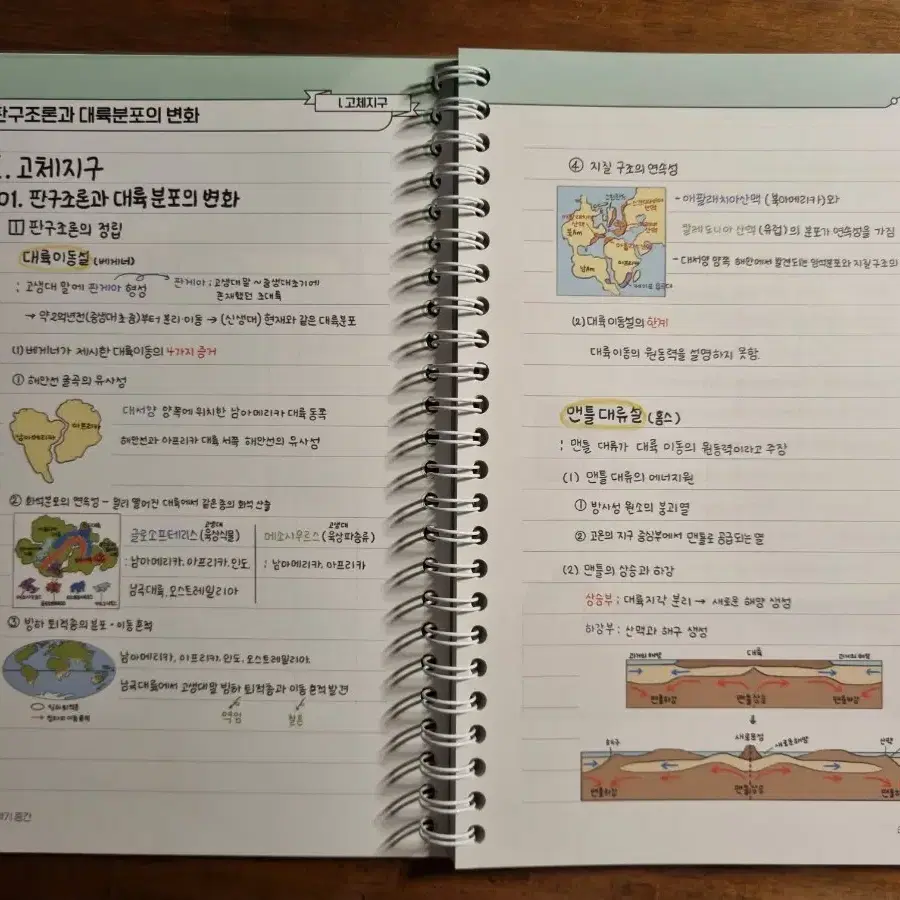 판구조론과 대륙분포의 변화
I.고체지구
I. 고체지구
01. 판구조론과 대륙분포의 변화
1 판구조론의 정립
대륙이동설 (베게너)
: 고생대 말에 판게아 형성
판게아 ; 고생대말 ~ 중생대초기에
존재했던 초대륙
→ 약 2억년전(중생대 초·중)부터 분리·이동 → (신생대) 현재와 같은 대륙분포
(1) 베게너가 제시한 대륙이동의 4가지 증거
① 해안선 굴곡의 유사성
남아메리카
아프리카
대서양 양쪽에 위치한 남아메리카 대륙 동쪽
해안선과 아프리카 대륙 서쪽 해안선의 유사성
② 화석분포의 연속성 - 멀리 떨어진 대륙에서 같은종의 화석 산출
고생대
글로소프테리스 (육상식물)
: 남아메리카, 아프리카, 인도,
남극대륙, 오스트레일리아
고생대
메소사우르스 (육상파충류)
; 남아메리카, 아프리카
③ 빙하 퇴적층의 분포·이동흔적
남아메리카, 아프리카, 인도, 오스트레일리아,
남극대륙에서 고생대말 빙하 퇴적층과 이동 흔적 발견
빙하퇴적층
④ 지질 구조의 연속성
북Am
남Am
아프리카
- 애팔래치아산맥 (북아메리카)와
칼레도니아 산맥 (유럽)의 분포가 연속성을 가짐
- 대서양 양쪽 해안에서 발견되는 암석분포와 지질구조의
(2) 대륙이동설의 한계
대륙이동의 원동력을 설명하지 못함
맨틀대류설 (홈스)
; 맨틀 대류가 대륙 이동의 원동력이라고 주장
(1) 맨틀 대류의 에너지원
① 방사성 원소의 붕괴열
② 고온의 지구 중심부에서 맨틀로 공급되는 열
(2) 맨틀의 상승과 하강
상승부 : 대륙지각 분리 → 새로운 해양 생성
하강부 : 산맥과 해구 생성
과거의 해양
대륙
과거의 해양
맨틀하강
맨틀상승
맨틀하강
해구
새로운섬
새로운해양
산맥
맨틀하강
맨틀상승
맨틀하